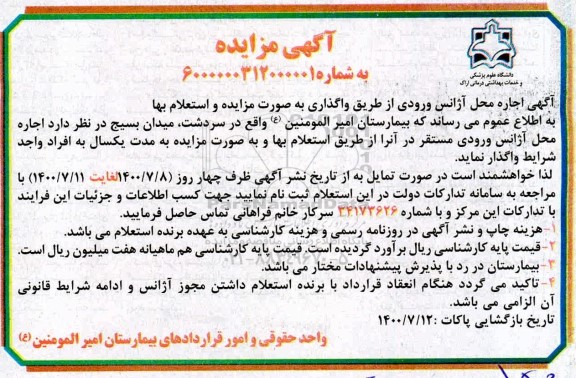 آگهی مزایده
به شماره ۶۰۰۰۰۰۰۳۱۲۰۰۰۰۰۱
دانشگاه علوم پزشکی
و خدمات بهداشتی درمانی اراک
آگهی اجاره محل آژانس ورودی از طریق واگذاری به صورت مزایده و استعلام بها
به اطلاع عموم می رساند که بیمارستان امیر المومنین (ع) واقع در سردشت، میدان بسیج در نظر دارد اجاره
محل آژانس ورودی مستقر در آنرا از طریق استعلام بها و به صورت مزایده به مدت یکسال به افراد واجد
شرایط واگذار نماید.
لذا خواهشمند است در صورت تمایل به از تاریخ نشر آگهی ظرف چهار روز (۱۴۰۰/۷/۸لغایت ۱۴۰۰/۷/۱۱) با
مراجعه به سامانه تدارکات دولت در این استعلام ثبت نام نمایید جهت کسب اطلاعات و جزئیات این فرایند
با تدارکات این مرکز و با شماره ۳۴۱۷۳۶۲۶ سرکار خانم فراهانی تماس حاصل فرمایید.
۱-هزینه چاپ و نشر آگهی در روزنامه رسمی و هزینه کارشناسی به عهده برنده استعلام می باشد.
۲-قیمت پایه کارشناسی ریال برآورد گردیده است.قیمت پایه کارشناسی هم ماهیانه هفت میلیون ریال است.
۳-بیمارستان در رد یا پذیرش پیشنهادات مختار می باشد.
۴-تاکید می گردد هنگام انعقاد قرارداد با برنده استعلام داشتن مجوز آژانس و ادامه شرایط قانونی
آن الزامی می باشد.
تاریخ بازگشایی پاکات :۱۴۰۰/۷/۱۲
واحد حقوقی و امور قراردادهای بیمارستان امیر المومنین (ع)